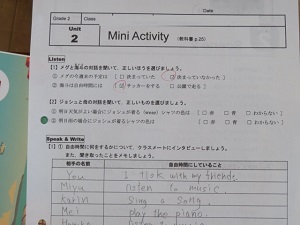 Date
Grade 2 Class
Unit 2
Mini Activity
(教科書 p.25)
Listen
【1】メグと海斗の対話を聞いて、正しいほうを選びましょう。
① メグの今週末の予定は [ □ 決まっていた □ 決まっていなかった ]
② 海斗は自由時間には [ □ サッカーをする □ 公園で走る ]
【2】ジョシュと母の対話を聞いて、正しいものを選びましょう。
① 明日天気がよい場合にジョシュが着る (wear) シャツの色は [ □ 赤 □ 青 □ わからない ]
② 明日雨の場合にジョシュが着るシャツの色は [ □ 赤 □ 青 □ わからない ]
Speak & Write
【1】① 自由時間に何をするかについて、クラスメートにインタビューしましょう。
また、聞き取ったことをメモしましょう。
相手の名前 自由時間にしていること
You I talk with my friends.
Miyu listen to music.
Karin Sing a song.
Mei play the piano.
listen to music